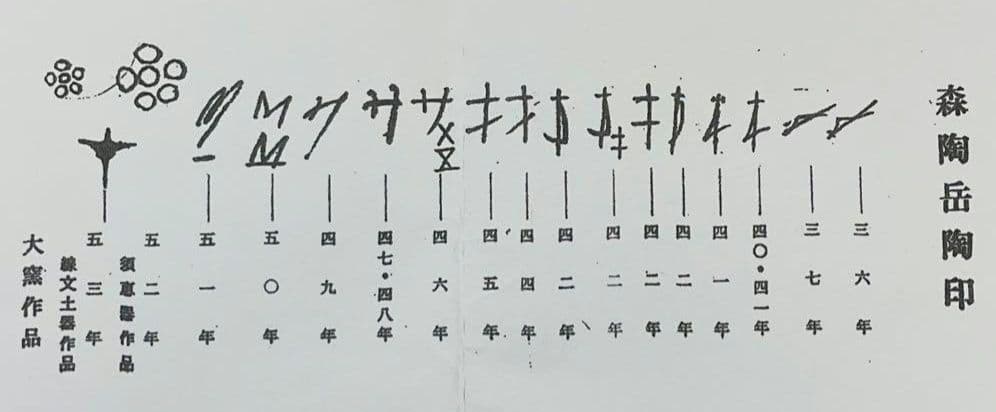 森陶岳陶印
三六年
三七年
四〇・四一年
四一年
四二年
四二年
四二年
四二年
四四年
四五年
四六年
四七・四八年
四九年
五〇年
五一年
五二年
須恵器作品
五三年
線文土器作品
大窯作品